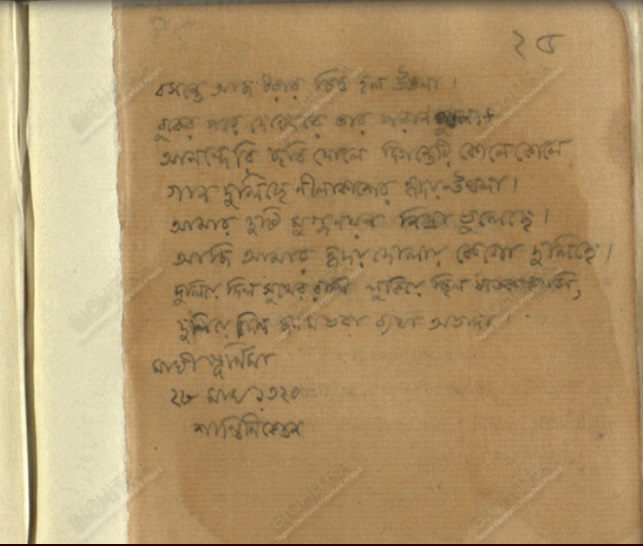 ২৫
বসন্তে আজ ধরার চিত্ত হল উতলা।
বুকের পরে দোলেরে তার পরান পুতলা।
আনন্দেরি ছবি দোলে দিগন্তেরি কোলে কোলে
গান দুলিছে নীলাকাশের হৃদয়-উথলা।
আমার দুটি মুগ্ধ নয়ন নিদ্রা ভুলেছে।
আজি আমার হৃদয় দোলায় কেগো দুলিছে।
দুলিয়ে দিল সুখের রাশি লুকিয়ে ছিল যতেক হাসি,
দুলিয়ে দিল জনম ভরা ব্যথা অতলা।
মাঘী পূর্ণিমা
২৮ মাঘ ১৩২০
শান্তিনিকেতন